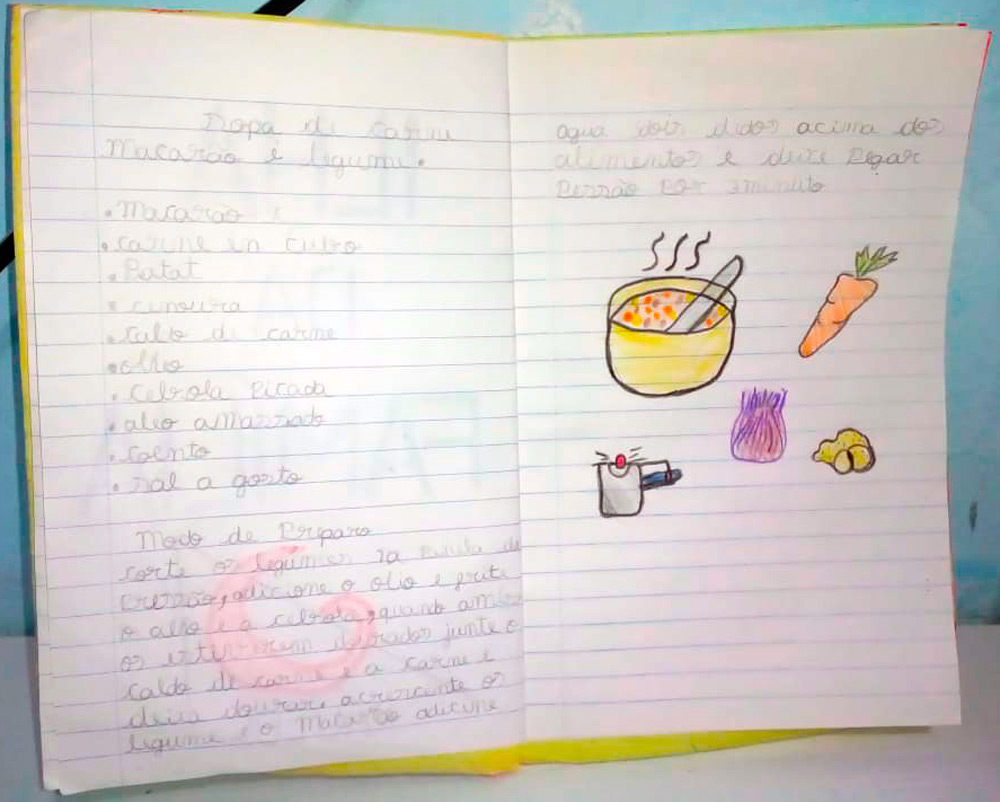 Sopa de carne
Macarão e legume.
• Macarão
• carne en cubo
• Batat
• cenoura
• calbo de carne
• olho
• Cebola Picada
• alio amassado
• coento
• sal a gosto
Modo de Preparo
corte os legumes na panela de
Pressão, adicione o olio e frite
o alho e a cebola, quando ambos
os estiverem dourados junte o
caldo de carne e a carne e
deixa dourar, acrescente os
legume e o Macarão adicine
agua dois dedos acima dos
alimentos e deixe Pegar
Pessão Por 3minuto